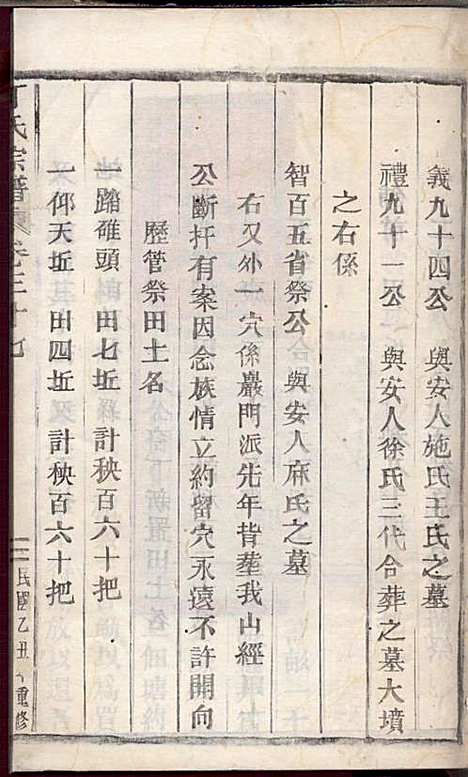 義九十四公 與安人施氏王氏之墓
禮九十一公 與安人徐氏三代合葬之墓大墳
之右係
智百五省祭公 與安人麻氏之墓
右又外一穴係巖門派先年背塟我山經
公斷扦有案因念族情立約留穴永遠不許開向
歷管祭田土名
一踏碓頭 田七坵 計秧百六十把
一仰天坵 田四坵 計秧百六十把
丁氏宗譜 卷之三十七 民國乙丑年重修